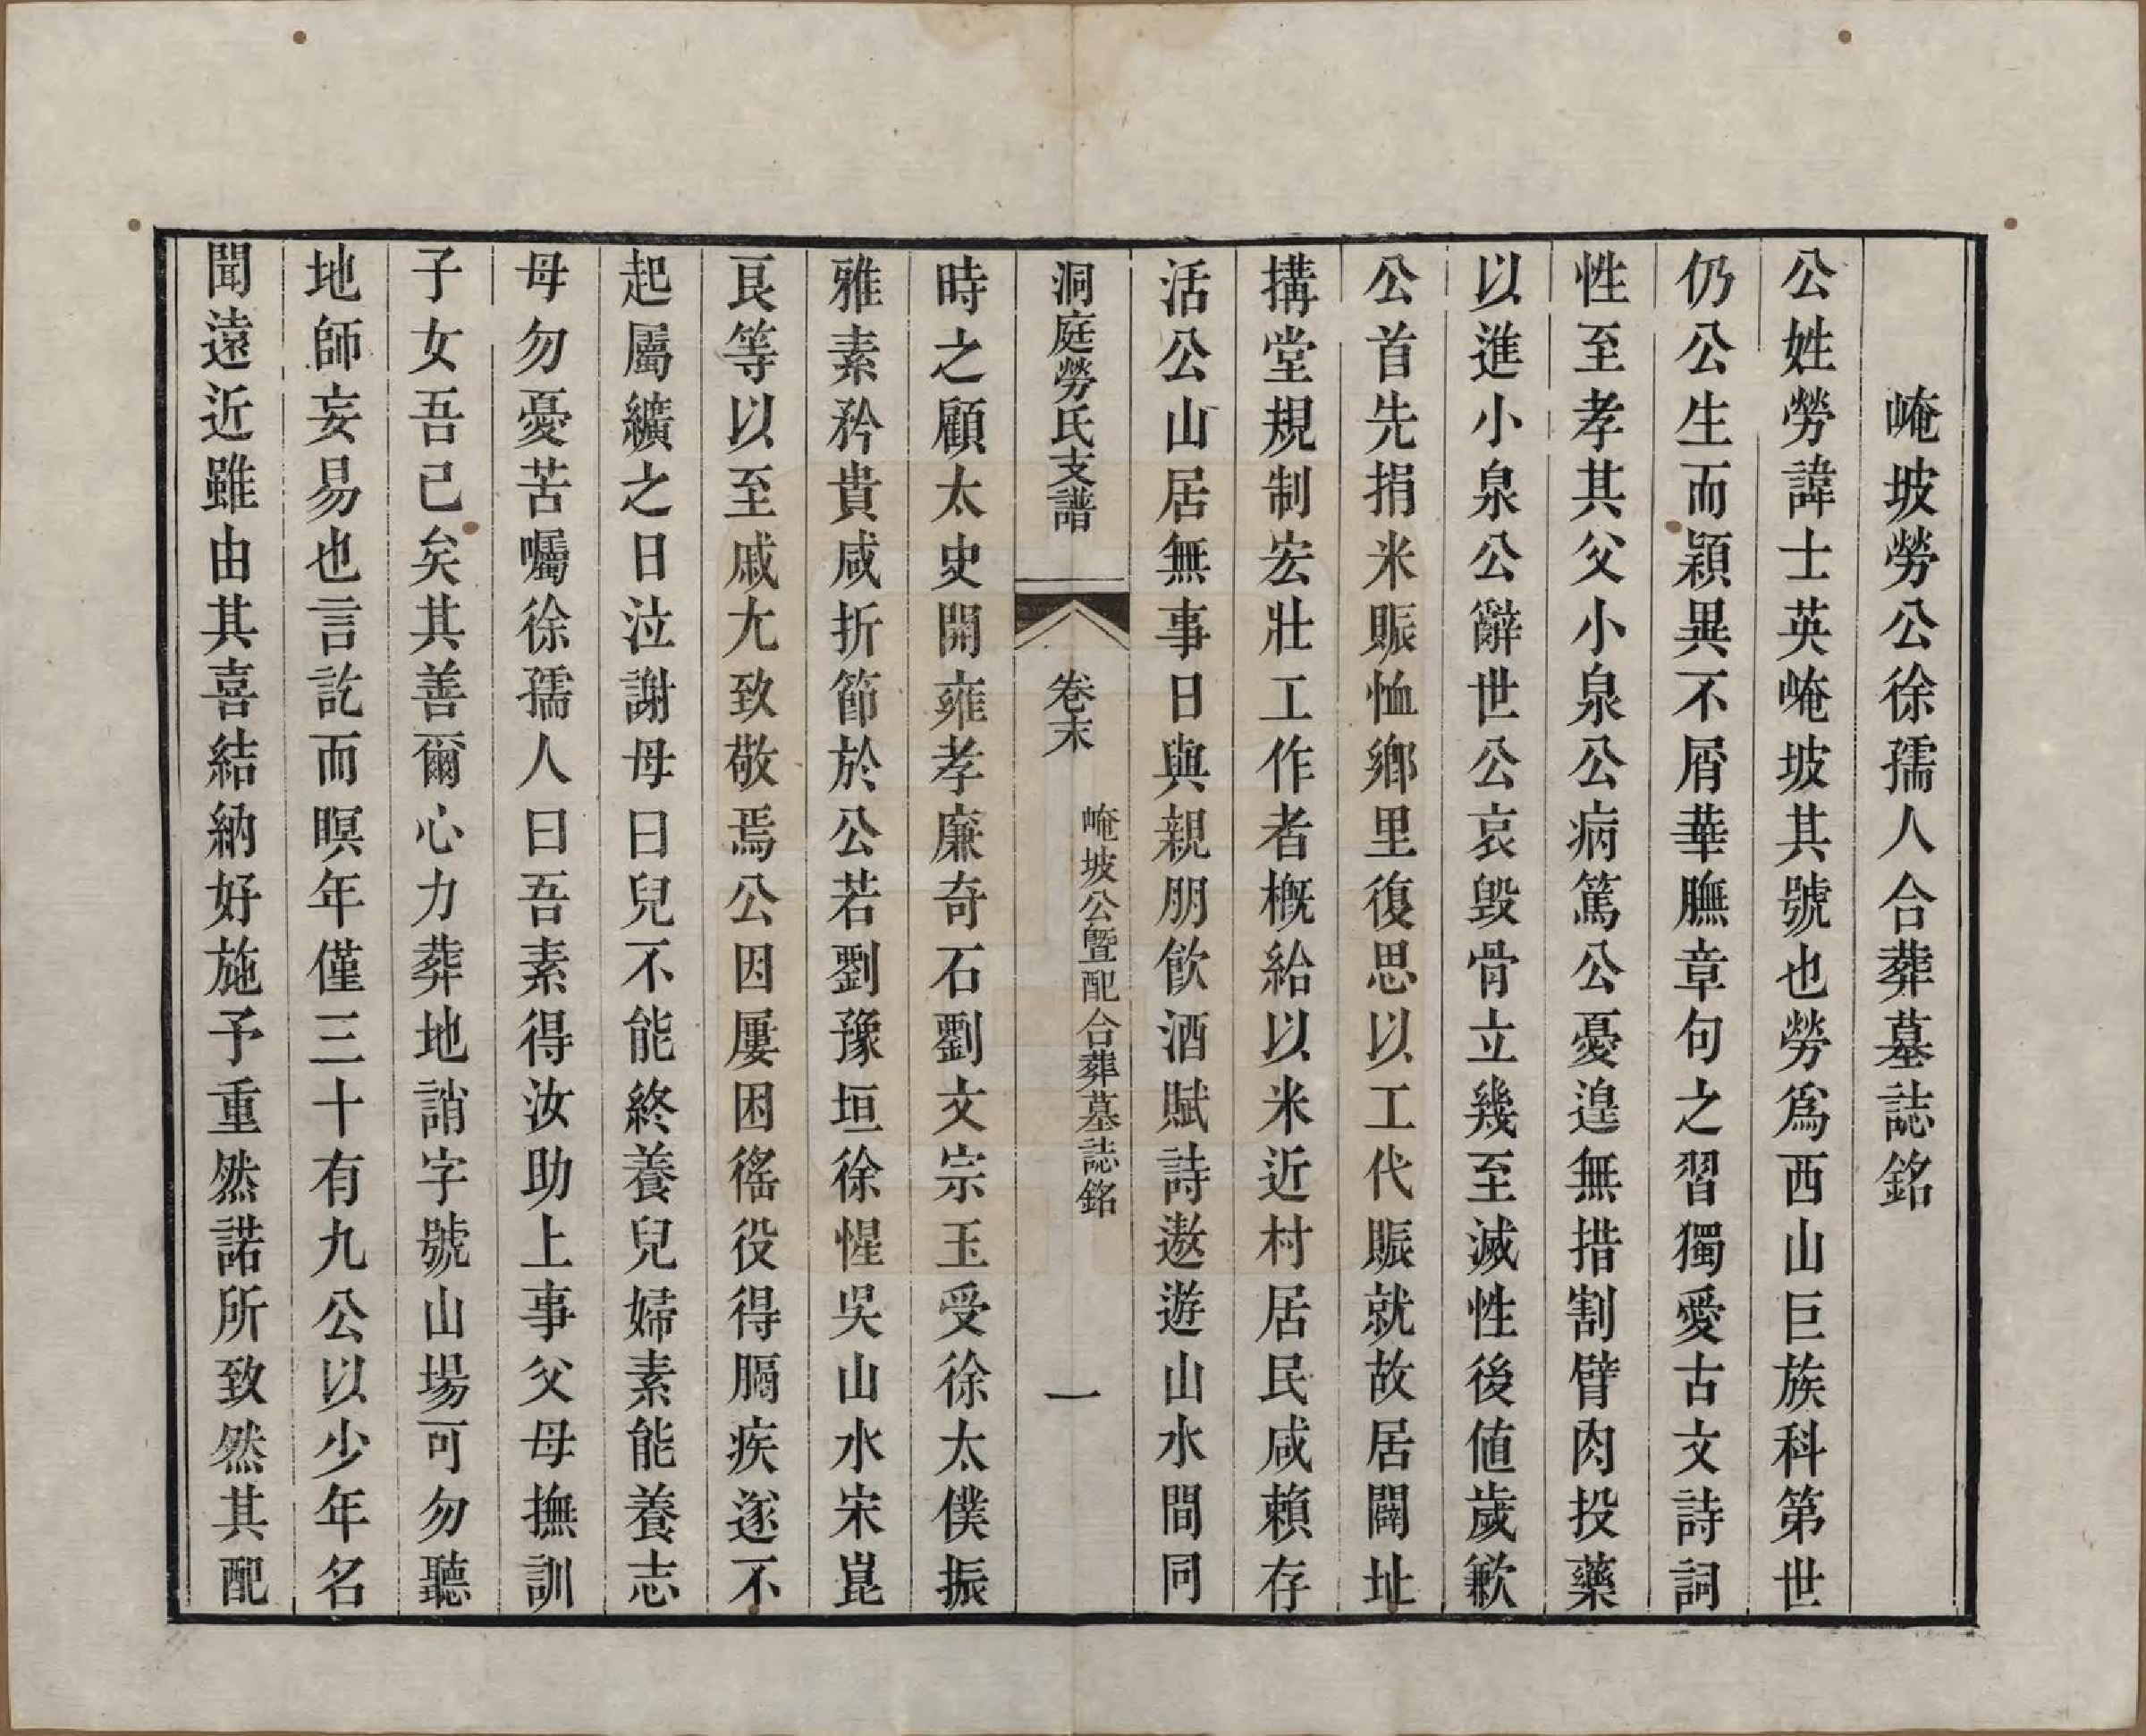 崦坡勞公徐孺人合葬墓誌銘
公姓勞諱士英崦坡其號也勞爲西山巨族科第世
仍公生而穎異不屑華膴章句之習獨愛古文詩詞
性至孝其父小泉公病篤公憂遑無措割臂肉投藥
以進小泉公辭世公哀毀骨立幾至滅性後値歲歉
公首先捐米賑恤鄉里復思以工代賑就故居闢址
搆堂規制宏壯工作者槪給以米近村居民咸賴存
活公山居無事日與親朋飮酒賦詩遨遊山水間同
洞庭勞氏支譜
卷末
崦坡公曁配合葬墓誌銘
一
時之顧太史開雍孝廉奇石劉文宗玉受徐太僕振
雅素矜貴咸折節於公若劉豫垣徐惺吳山水宋崑
艮等以至戚尤致敬焉公因屢困徭役得膈疾遂不
起屬纊之日泣謝母曰兒不能終養兒婦素能養志
母勿憂苦囑徐孺人曰吾素得汝助上事父母撫訓
子女吾已矣其善爾心力葬地誚字號山場可勿聽
地師妄易也言訖而瞑年僅三十有九公以少年名
聞遠近雖由其喜結納好施予重然諾所致然其配